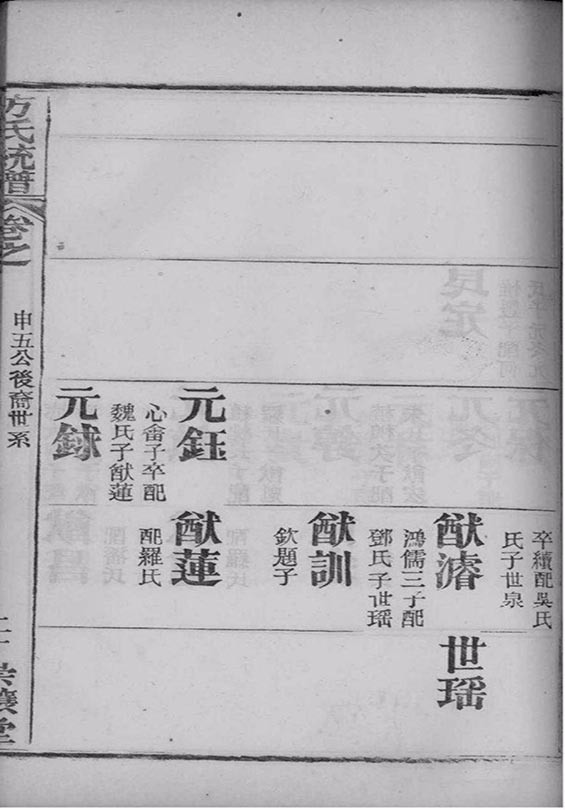 卒續配吳氏
氏子世泉
猷濬
鴻儒三子配
鄧氏子世瑶
世瑶
猷訓
欽題子
元鈺
心畬子卒配
魏氏子猷蓮
猷蓮
配羅氏
元銶
方氏統譜
卷之
申五公後裔世系